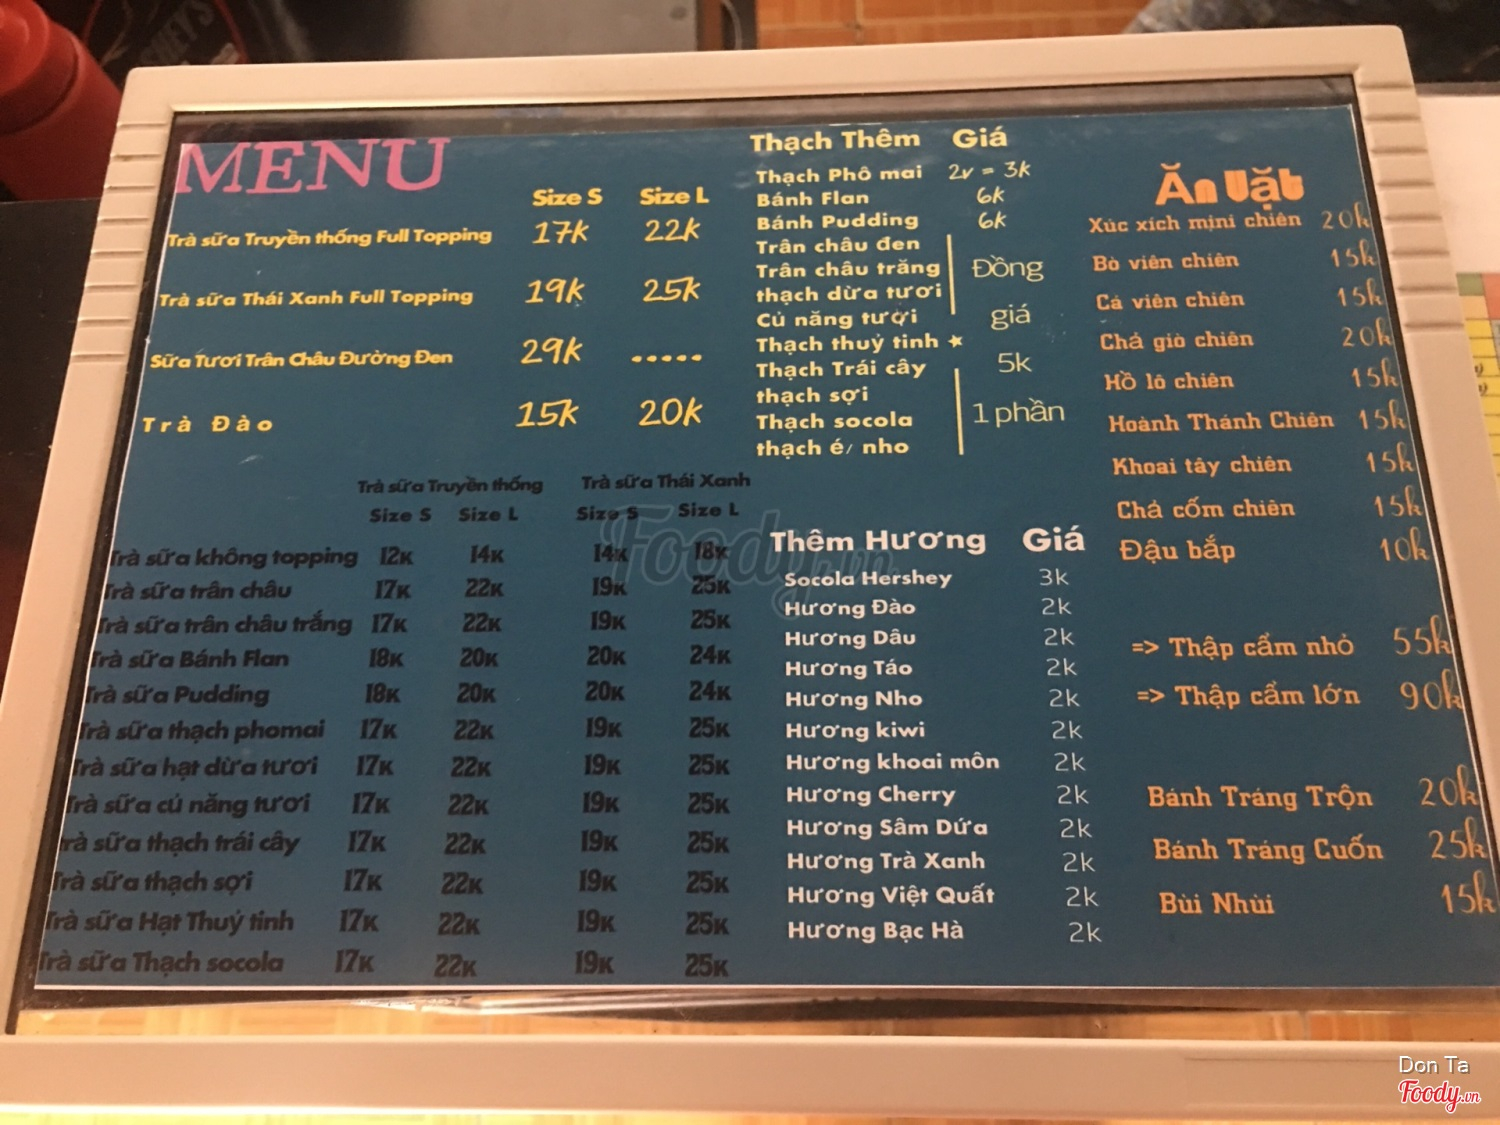 MENU
Size S Size L
Trà sữa Truyền thống Full Topping 17k 22k
Trà sữa Thái Xanh Full Topping 19k 25k
Sữa Tươi Trân Châu Đường Đen 29k .....
Trà Đào 15k 20k
Trà sữa Truyền thống Trà sữa Thái Xanh
Size S Size L Size S Size L
Trà sữa không topping 12K 14K 14K 18K
Trà sữa trân châu 17K 22K 19K 25K
Trà sữa trân châu trắng 17K 22K 19K 25K
Trà sữa Bánh Flan 18K 20K 20K 24K
Trà sữa Pudding 18K 20K 20K 24K
Trà sữa thạch phomai 17K 22K 19K 25K
Trà sữa hạt dừa tươi 17K 22K 19K 25K
Trà sữa củ năng tươi 17K 22K 19K 25K
Trà sữa thạch trái cây 17K 22K 19K 25K
Trà sữa thạch sợi 17K 22K 19K 25K
Trà sữa Hạt Thuỷ tinh 17K 22K 19K 25K
Trà sữa Thạch socola 17K 22K 19K 25K
Thạch Thêm Giá
Thạch Phô mai 2v = 3k
Bánh Flan 6k
Bánh Pudding 6k
Trân châu đen
Trân châu trăng
thạch dừa tươi
Củ năng tươi
Thạch thuỷ tinh ★
Thạch Trái cây
thạch sợi
Thạch socola
thạch é/ nho
Đồng
giá
5k
1 phần
Thêm Hương Giá
Socola Hershey 3k
Hương Đào 2k
Hương Dâu 2k
Hương Táo 2k
Hương Nho 2k
Hương kiwi 2k
Hương khoai môn 2k
Hương Cherry 2k
Hương Sâm Dứa 2k
Hương Trà Xanh 2k
Hương Việt Quất 2k
Hương Bạc Hà 2k
Ăn Vặt
Xúc xích mini chiên 20k
Bò viên chiên 15k
Cá viên chiên 15k
Chả giò chiên 20k
Hồ lô chiên 15k
Hoành Thánh Chiên 15k
Khoai tây chiên 15k
Chả cốm chiên 15k
Đậu bắp 10k
=> Thập cẩm nhỏ 55k
=> Thập cẩm lớn 90k
Bánh Tráng Trộn 20k
Bánh Tráng Cuốn 25k
Bùi Nhùi 15k
Foody.vn
Don Ta
Foody.vn